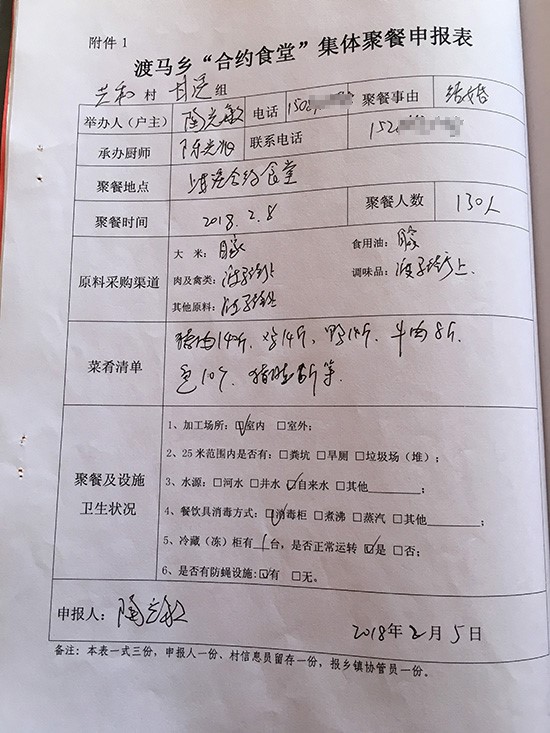 附件1
渡马乡“合约食堂”集体聚餐申报表
共和村 组
举办人(户主) 陶 敏 电话 150 聚餐事由 结婚
承办厨师 陈光 联系电话 152
聚餐地点 合约食堂
聚餐时间 2018.2.8 聚餐人数 130人
原料采购渠道
大 米: 自家 食用油: 自家
肉及禽类: 街上 调味品: 渡马街上.
其他原料: 街上
菜肴清单
猪肉140斤. 鸡14斤, 鸭14斤. 牛肉8斤.
鱼10斤. 等.
聚餐及设施卫生状况
1、加工场所: ☑室内 □室外;
2、25米范围内是否有: □粪坑 □旱厕 □垃圾场(堆);
3、水源: □河水 □井水 ☑自来水 □其他______;
4、餐饮具消毒方式: ☑消毒柜 □煮沸 □蒸汽 □其他______;
5、冷藏(冻)柜有 1 台, 是否正常运转 ☑是 □否;
6、是否有防蝇设施: ☑有 □无。
申报人: 陶 敏
2018年2月5日
备注: 本表一式三份, 申报人一份、村信息员留存一份, 报乡镇协管员一份。